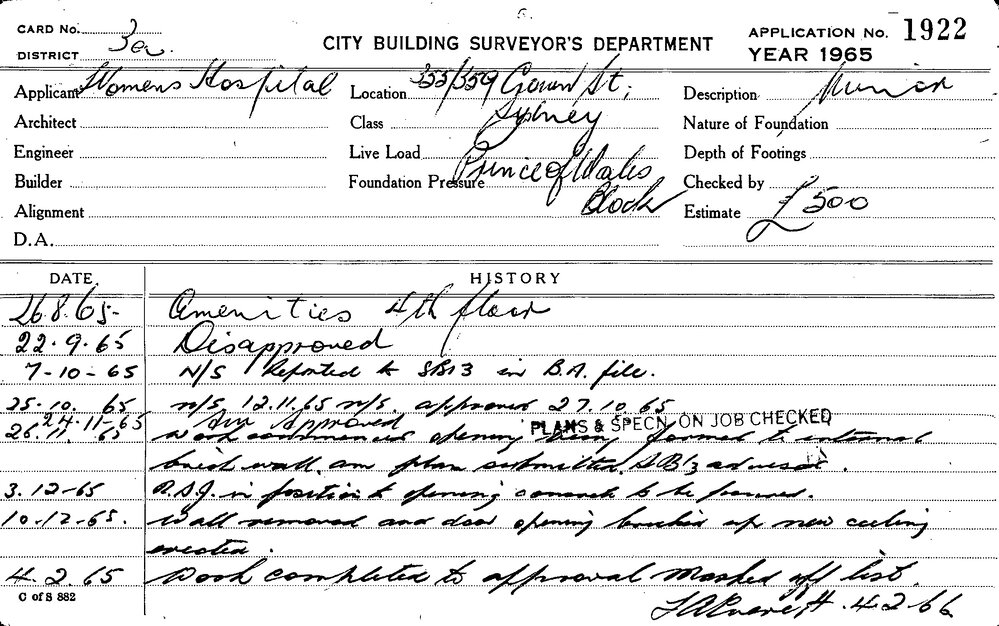 CARD No. 3ea.
DISTRICT
CITY BUILDING SURVEYOR'S DEPARTMENT
APPLICATION No. 1922
YEAR 1965
Applicant Womens Hospital
Location 355/359 Crown St; Sydney
Description
Architect
Class
Nature of Foundation
Engineer
Live Load Prince of Wales
Depth of Footings
Builder
Foundation Pressure Block
Checked by
Alignment
Estimate £500
D.A.
DATE HISTORY
26.8.65- Amenities 4th floor
22.9.65 Disapproved
7-10-65 N/S Reported to SB13 in B.A. file.
25.10.65 n/s 12.11.65 n/s approved 27.10.65
24.11-65 Approved
PLANS & SPECN. ON JOB CHECKED
26.11.65 Work commenced opening being formed to internal
brick wall, am plan submitted, SB13 advised.
3.12-65 R.S.J. in position to opening concrete to be poured.
10-12-65. Wall removed and door opening bricked up new ceiling
erected.
4.2.65 Work completed to approval marked off list.
4-2-66
C of S 882